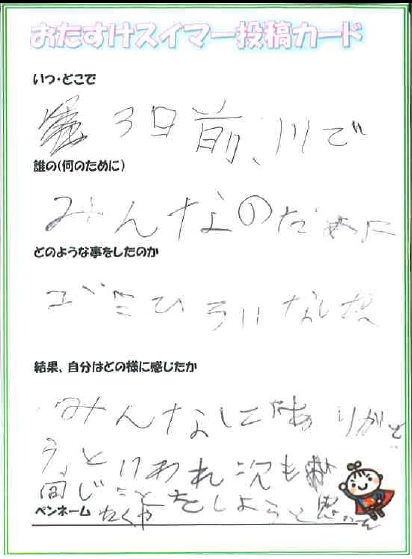 おたすけスイマー投稿カード
いつ・どこで
3日前、川で
誰の(何のために)
みんなのために
どのような事をしたのか
ゴミひろいをした
結果、自分はどの様に感じたか
みんなにありがと
う、といわれ次も
同じことをしようと思った
ペンネーム